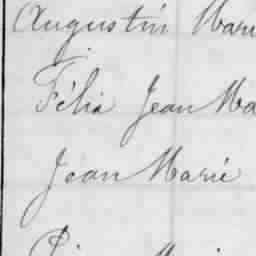 Augustin Mari
Félix Jean Ma
Jean Marie